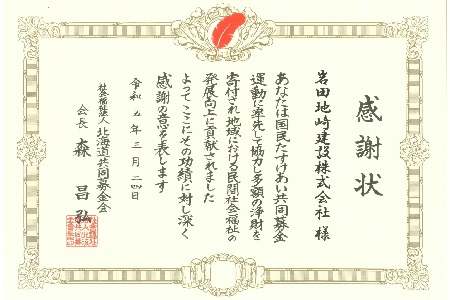 感謝状
岩田地崎建設株式会社 様
あなたは国民たすけあい共同募金
運動に率先して協力し多額の浄財を
寄付され地域における民間社会福祉の
発展向上に貢献されました
よってここにその功績に対し深く
感謝の意を表します
令和五年三月二四日
社会福祉法人 北海道共同募金会
会長 森 昌弘